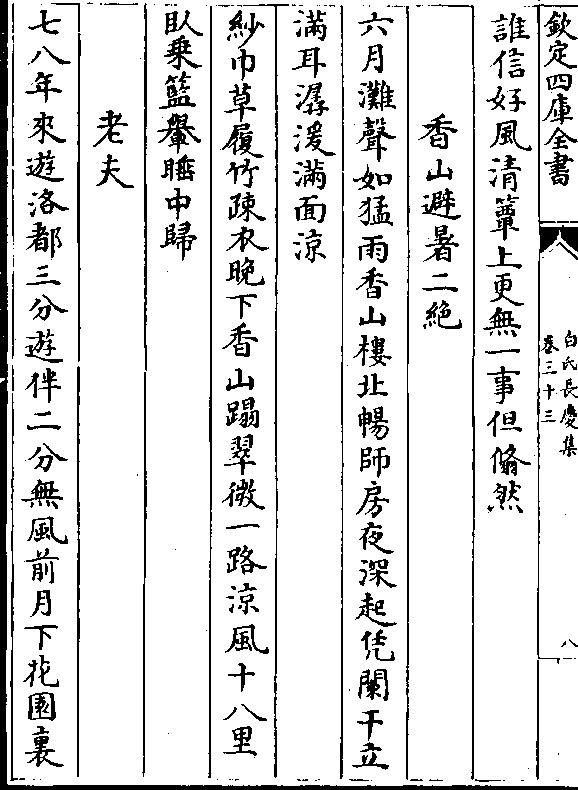 欽定四庫全書
白氏長慶集
卷三十三
八
誰信好風清簟上更無一事但翛然
香山避暑二絶
六月灘聲如猛雨香山樓北暢師房夜深起凭闌干立
滿耳潺湲滿面涼
紗巾草履竹疎衣晚下香山蹋翠微一路涼風十八里
臥乗籃轝睡中歸
老夫
七八年來遊洛都三分遊伴二分無風前月下花園裏